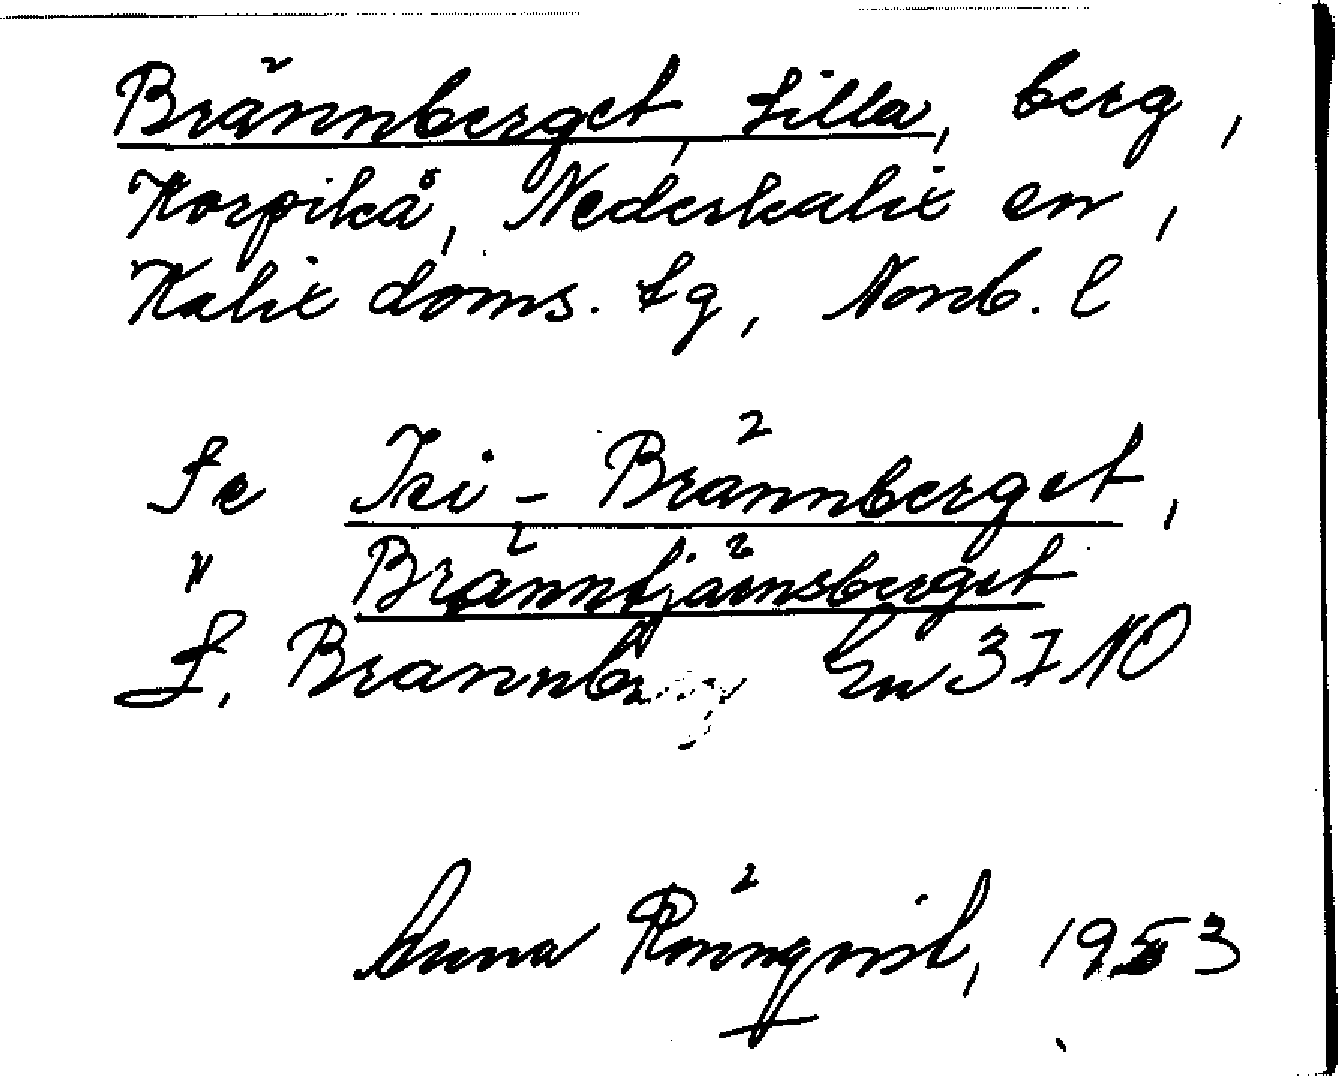 Brännberget, Lilla, berg,
Korpikå, Nederkalix sn,
Kalix doms. lg, Norrb. l
Se Isi - Brännberget,
" Bränntjärnsberget
L. Brännberg Gen 37 NO
Anna Rönnqvist, 1953